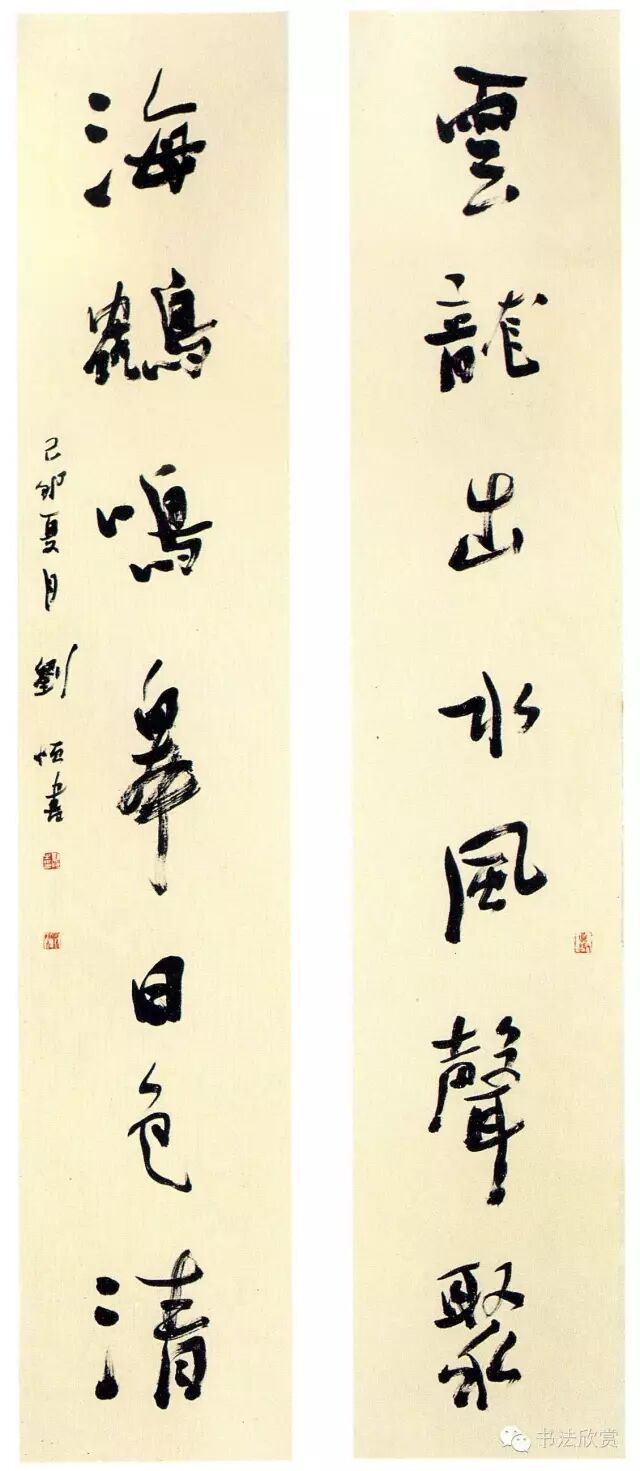 雲龍出水風聲聚
海鶴鳴皋日色清
己卯夏月 劉恒書
书法欣赏